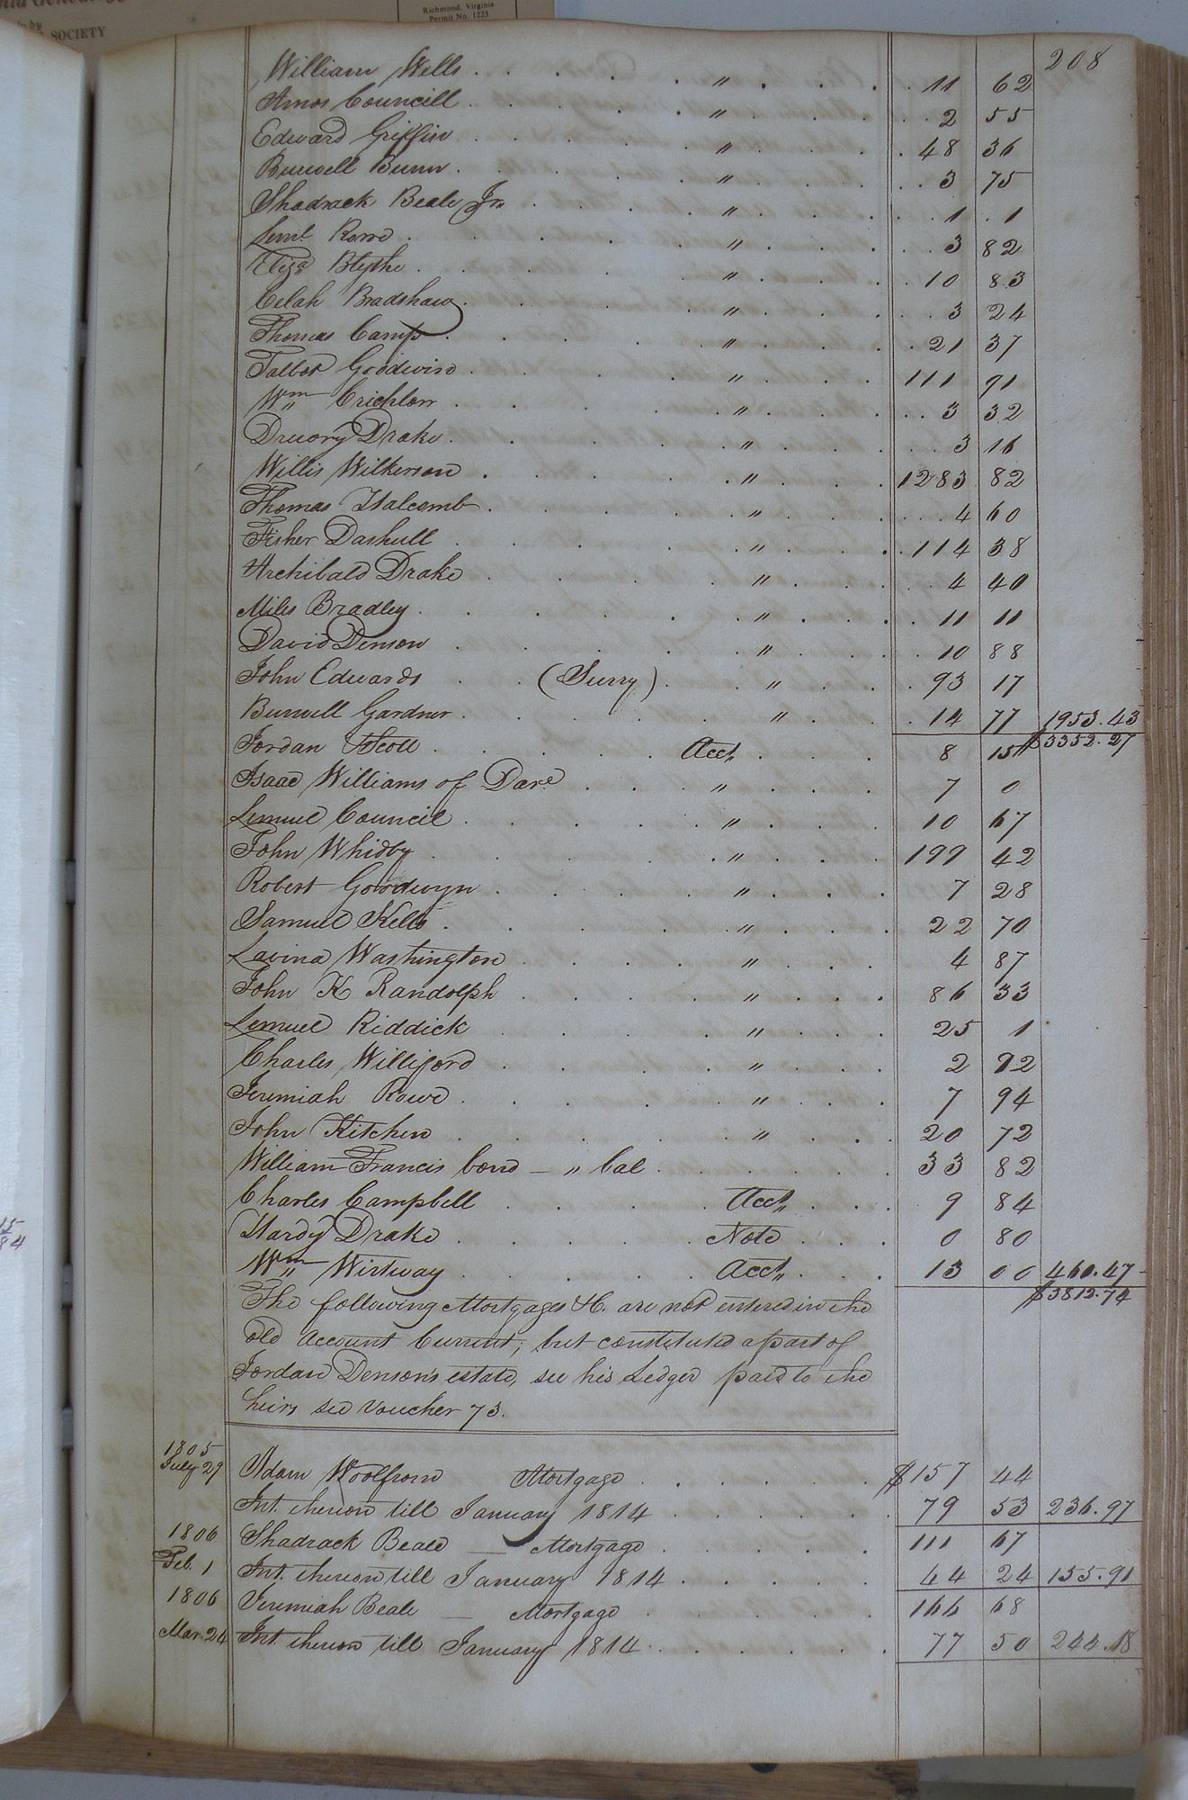 SOCIETY
Richmond, Virginia
Permit No. 1225
208
William Wells . . . . " . . . 11 62
Amos Councill . . . . " . . . 2 55
Edward Griffin . . . . " . . . 48 36
Burwell Bunn . . . . " . . . 3 75
Shadrack Beale Jr. . . . . " . . . 1 . 1
Leml. Rowe . . . . " . . . 3 82
Eliza Blythe . . . . " . . . 10 83
Celah Bradshaw . . . . " . . . 3 24
Thomas Camp . . . . " . . . 21 37
Talbot Goodwin . . . . " . . . 111 91
Wm Crichlow . . . . " . . . 3 32
Drury Drake . . . . " . . . 3 16
Willis Wilkerson . . . . " . . . 1283 82
Thomas Halcomb . . . . " . . . 4 60
Fisher Dashull . . . . " . . . 114 38
Archibald Drake . . . . " . . . 4 40
Miles Bradley . . . . " . . . 11 11
David Denson . . . . " . . . 10 88
John Edwards . . (Surry) . . " . . . 93 17
Burwell Gardner . . . . " . . . 14 77 1953.43
Jordan Scott . . . . Acct. . . . 8 15 $3352.27
Isaac Williams of Davd . . . " . . . 7 0
Lemuel Council . . . . " . . . 10 67
John Whidby . . . . " . . . 199 42
Robert Goodwyn . . . . " . . . 7 28
Samuel Kello . . . . " . . . 22 70
Lavina Washington . . . . " . . . 4 87
John K Randolph . . . . " . . . 86 33
Lemuel Riddick . . . . " . . . 25 1
Charles Williford . . . . " . . . 2 92
Jeremiah Rowe . . . . " . . . 7 94
John Kitchen . . . . " . . . 20 72
William Francis bond — " bal . . . . 33 82
Charles Campbell . . . . Acct. . . . 9 84
Hardy Drake . . . . Note . . . 0 80
Wm Wistway . . . . Acct. . . . 13 00 460.47
$3812.74
The following Mortgages &C. are not entered in the
old Account Current; but constituted a part of
Jordan Denson's estate, see his Ledger paid to the
heirs see Voucher 73.
1805
July 29 Adam Woolfrom Mortgage . . . . $157 44
Int. thereon till January 1814 . . . . 79 53 236.97
1806 Shadrack Beale — Mortgage . . . . 111 67
Feb. 1 Int. thereon till January 1814 . . . . 44 24 155.91
1806 Jeremiah Beale — Mortgage . . . . 166 68
Mar. 24 Int. thereon till January 1814 . . . . 77 50 244.18
15
84